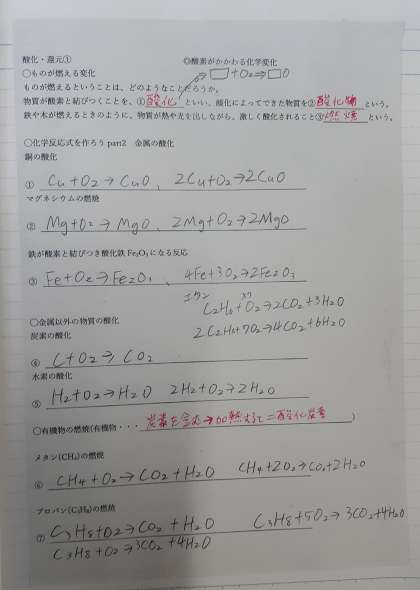 酸化・還元① ◎酸素がかかわる化学変化
〇ものが燃える変化 □+O₂⇒□O
ものが燃えるということは、どのようなことだろうか。
物質が酸素と結びつくことを、①酸化といい、酸化によってできた物質を②酸化物という。
鉄や木が燃えるときのように、物質が熱や光を出しながら、激しく酸化されること③燃焼という。
〇化学反応式を作ろう part2 金属の酸化
銅の酸化
① Cu+O₂→CuO、2Cu+O₂→2CuO
マグネシウムの燃焼
② Mg+O₂→MgO、2Mg+O₂→2MgO
鉄が酸素と結びつき酸化鉄 Fe₂O₃になる反応
③ Fe+O₂→Fe₂O₃、4Fe+3O₂→2Fe₂O₃
エタン
C₂H₆+O₂→2CO₂+3H₂O
〇金属以外の物質の酸化 2C₂H₆+7O₂→4CO₂+6H₂O
炭素の酸化
④ C+O₂→CO₂
水素の酸化
⑤ H₂+O₂→H₂O 2H₂+O₂→2H₂O
〇有機物の燃焼(有機物・・・炭素を含む→加熱すると二酸化炭素)
メタン(CH₄)の燃焼
⑥ CH₄+O₂→CO₂+H₂O CH₄+2O₂→CO₂+2H₂O
プロパン(C₃H₈)の燃焼
⑦ C₃H₈+O₂→CO₂+H₂O C₃H₈+5O₂→3CO₂+4H₂O
C₃H₈+O₂→3CO₂+4H₂O